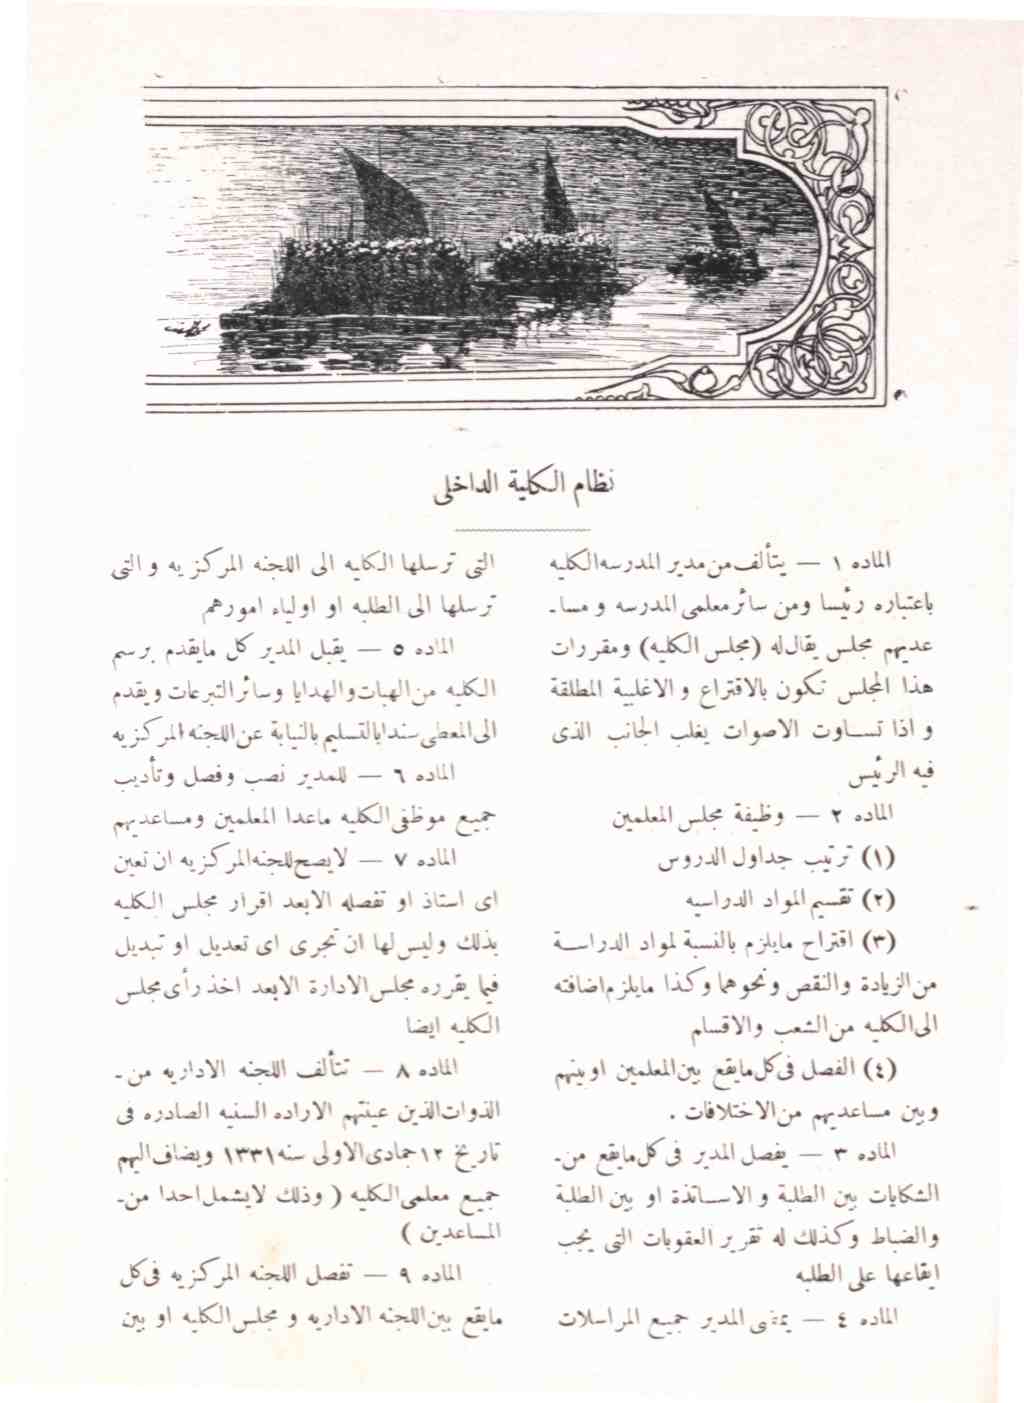 نظام الكلية الداخلى
الماده ١ — يتألف من مدير المدرسه الكليه
باعتباره رئيسا ومن سائر معلمى المدرسه و مسا-
عديهم مجلس يقال له (مجلس الكليه) ومقررات
هذا المجلس تكون بالاقتراع و الاغلبية المطلقة
و اذا تساوت الاصوات يغلب الجانب الذى
فيه الرئيس
الماده ٢ — وظيفة مجلس المعلمين
(١) ترتيب جداول الدروس
(٢) تقسيم المواد الدراسيه
(٣) اقتراح مايلزم بالنسبة لمواد الدراسة
من الزيادة والنقص ونحوهما وكذا مايلزم اضافته
الى الكليه من الشعب والاقسام
(٤) الفصل فى كل مايقع بين المعلمين او بينهم
وبين مساعديهم من الاختلافات .
الماده ٣ — يفصل المدير فى كل مايقع من-
الشكايات بين الطلبة و الاساتذة او بين الطلبة
والضباط وكذلك له تقرير العقوبات التى يجب
ايقاعها على الطلبه
الماده ٤ — يمضى المدير جميع المراسلات
التى ترسلها الكليه الى اللجنه المركزيه و التى
ترسلها الى الطلبه او اولياء امورهم
الماده ٥ — يقبل المدير كل مايقدم برسم
الكليه من الهبات والهدايا وسائر التبرعات ويقدم
الى المعطى سندا بالتسليم بالنيابة عن اللجنه المركزيه
الماده ٦ — للمدير نصب وفصل وتأديب
جميع موظفى الكليه ماعدا المعلمين ومساعديهم
الماده ٧ — لايصح للجنه المركزيه ان تعين
اى استاذ او تفصله الابعد اقرار مجلس الكليه
بذلك وليس لها ان تجرى اى تعديل او تبديل
فيما يقرره مجلس الادارة الابعد اخذ رأى مجلس
الكليه ايضا
الماده ٨ — تتألف اللجنه الاداريه من-
الذوات الذين عينتهم الاراده السنيه الصادره فى
تاريخ ١٢ جمادى الاولى سنه ١٣٣١ ويضاف اليهم
جميع معلمى الكليه ( وذلك لايشمل احدا من-
المساعدين )
الماده ٩ — تفصل اللجنه المركزيه فى كل
مايقع بين اللجنه الاداريه و مجلس الكليه او بين